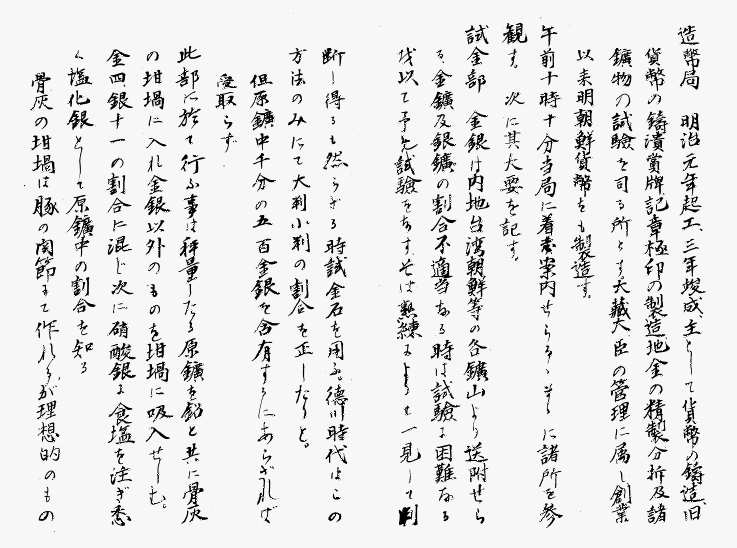 造幣局　明治元年起工、三年竣成、主として貨幣の鋳造、旧
貨幣の鋳潰賞牌記章極印の製造地金の精製分拆及諸
鑛物の試驗を司る所とす大藏大臣の管理に属し創業
以来明朝鮮貨幣をも製造す。
午前十時十分当局に着 案内せられ に諸所を参
観す。次に其大要を記す。
試金部　金銀は内地台湾朝鮮等の各鑛山より送附せら
る、金鑛及銀鑛の割合不適当なる時は試驗に困難なる
を以て予め試驗をなす。そは熟練によるも一見して判
断し得るも然らざる時試金石を用ふ。德川時代はこの
方法のみにて大判小判の割合を正したりと。
但原鑛中千分の五百金銀を含有するにあらざれば
受取らず
此部に於て行ふ事は秤量したる原鑛を鉛と共に骨灰
の坩堝に入れ金銀以外のものを坩堝に吸入せしむ。
金四銀十一の割合に混じ次に硝酸銀に食塩を注ぎ悉
く塩化銀として原鑛中の割合を知る
骨灰の坩堝は豚の関節にて作れるが理想的のもの